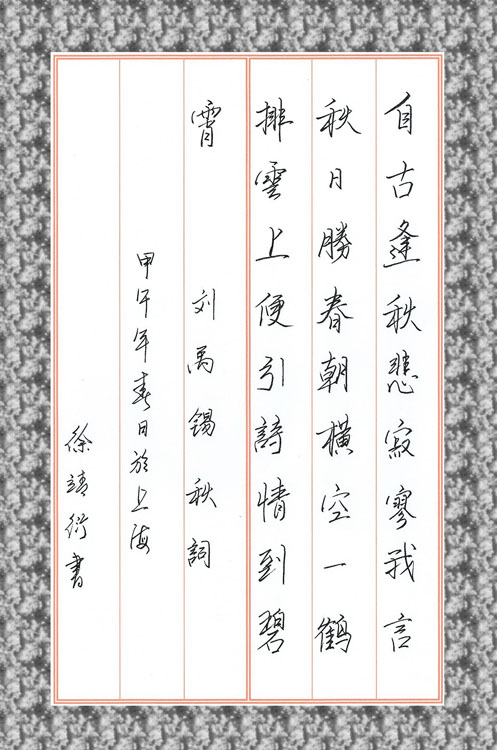 自古逢秋悲寂寥我言
秋日勝春朝橫空一鶴
排雲上便引詩情到碧
霄
刘禹锡秋詞
甲午年春日於上海
徐靖衍書